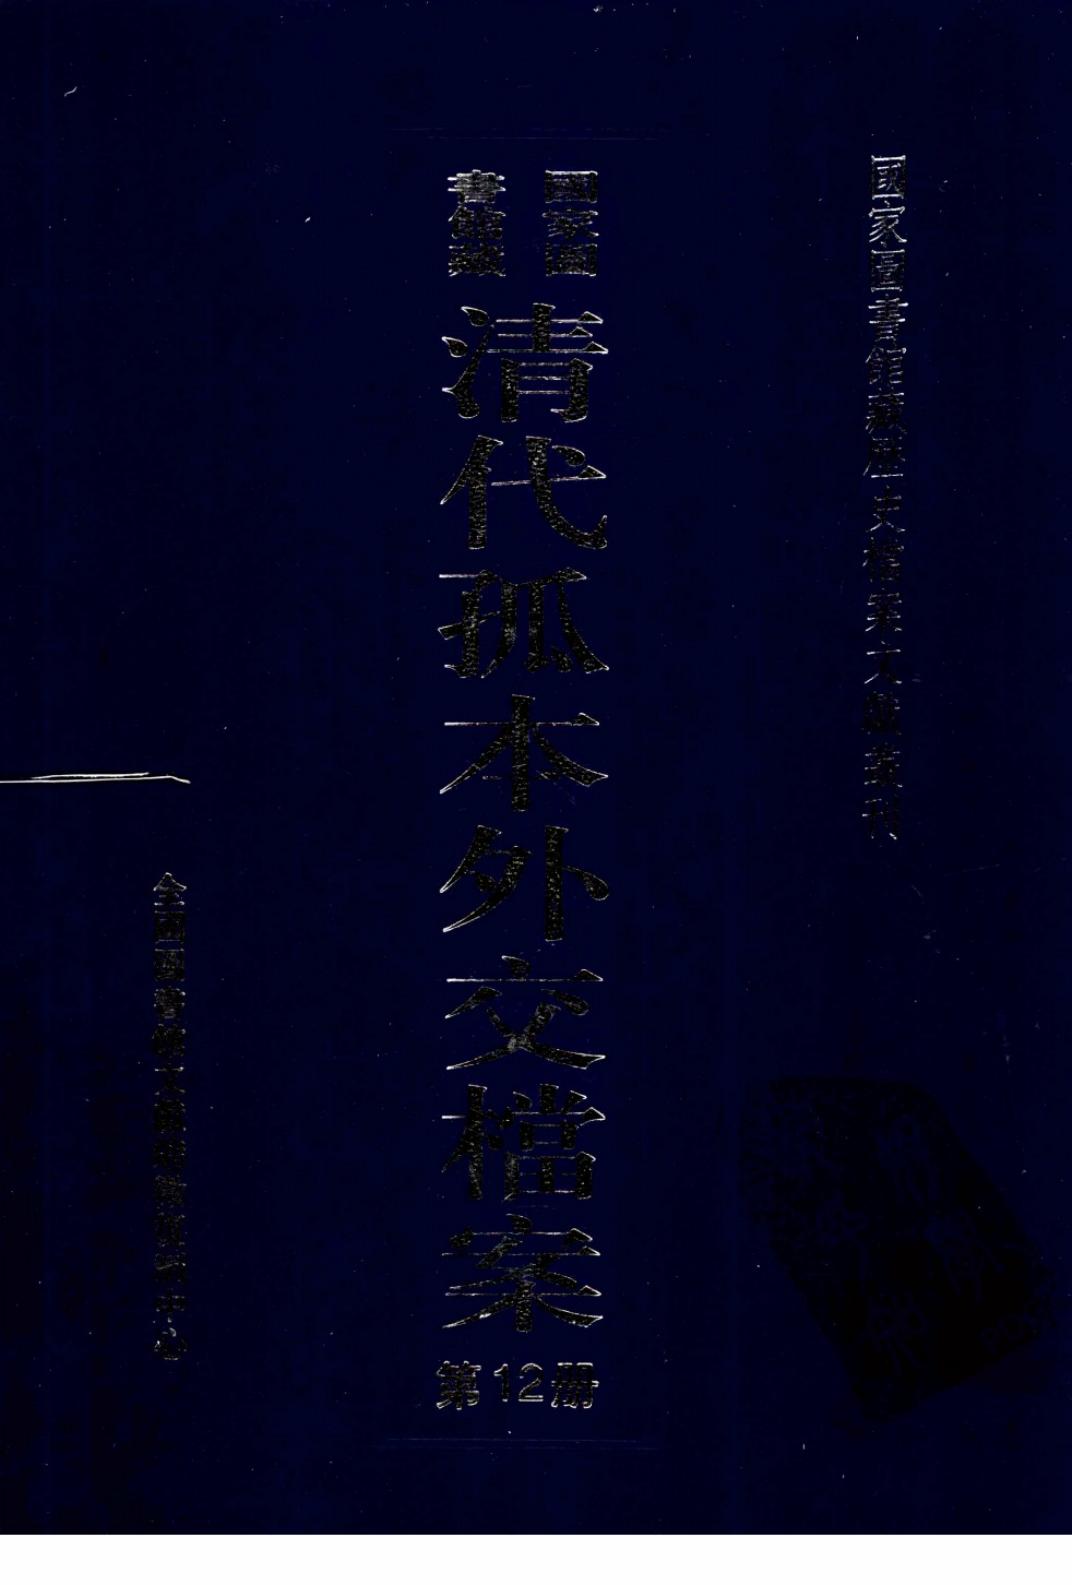 國家圖書館藏歷史檔案文獻叢刊
國家圖
書館藏
清代孤本外交檔案
第12册
全國圖書館文獻縮微複製中心